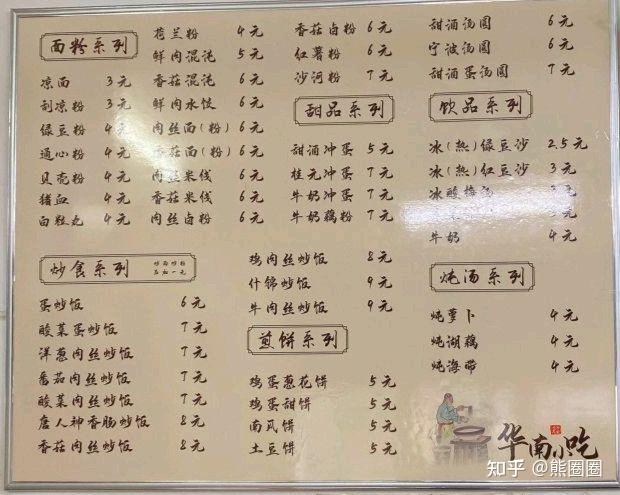 面粉系列
凉面 3元
刮凉粉 3元
绿豆粉 4元
通心粉 4元
贝壳粉 4元
猪血 4元
白粒丸 4元
荷兰粉 4元
鲜肉混沌 5元
香菇混沌 6元
鲜肉水饺 6元
肉丝面(粉) 6元
香菇面(粉) 6元
肉丝米线 6元
香菇米线 6元
肉丝卤粉 6元
香菇卤粉 6元
红薯粉 6元
沙河粉 7元
甜品系列
甜酒冲蛋 5元
桂元冲蛋 7元
牛奶冲蛋 7元
牛奶藕粉 7元
甜酒汤圆 6元
宁波汤圆 6元
甜酒蛋汤圆 7元
饮品系列
冰(热)绿豆沙 2.5元
冰(热)红豆沙 3元
冰酸梅汤 3元
牛奶 4元
炒食系列
炒面炒粉
另加一元
蛋炒饭 6元
酸菜蛋炒饭 7元
洋葱肉丝炒饭 7元
番茄肉丝炒饭 7元
酸菜肉丝炒饭 7元
唐人神香肠炒饭 8元
香菇肉丝炒饭 8元
鸡肉丝炒饭 8元
什锦炒饭 9元
牛肉丝炒饭 9元
煎饼系列
鸡蛋葱花饼 5元
鸡蛋甜饼 5元
南瓜饼 5元
土豆饼 5元
炖汤系列
炖萝卜 4元
炖湖藕 4元
炖海带 4元
华南小吃
知乎 @熊圈圈